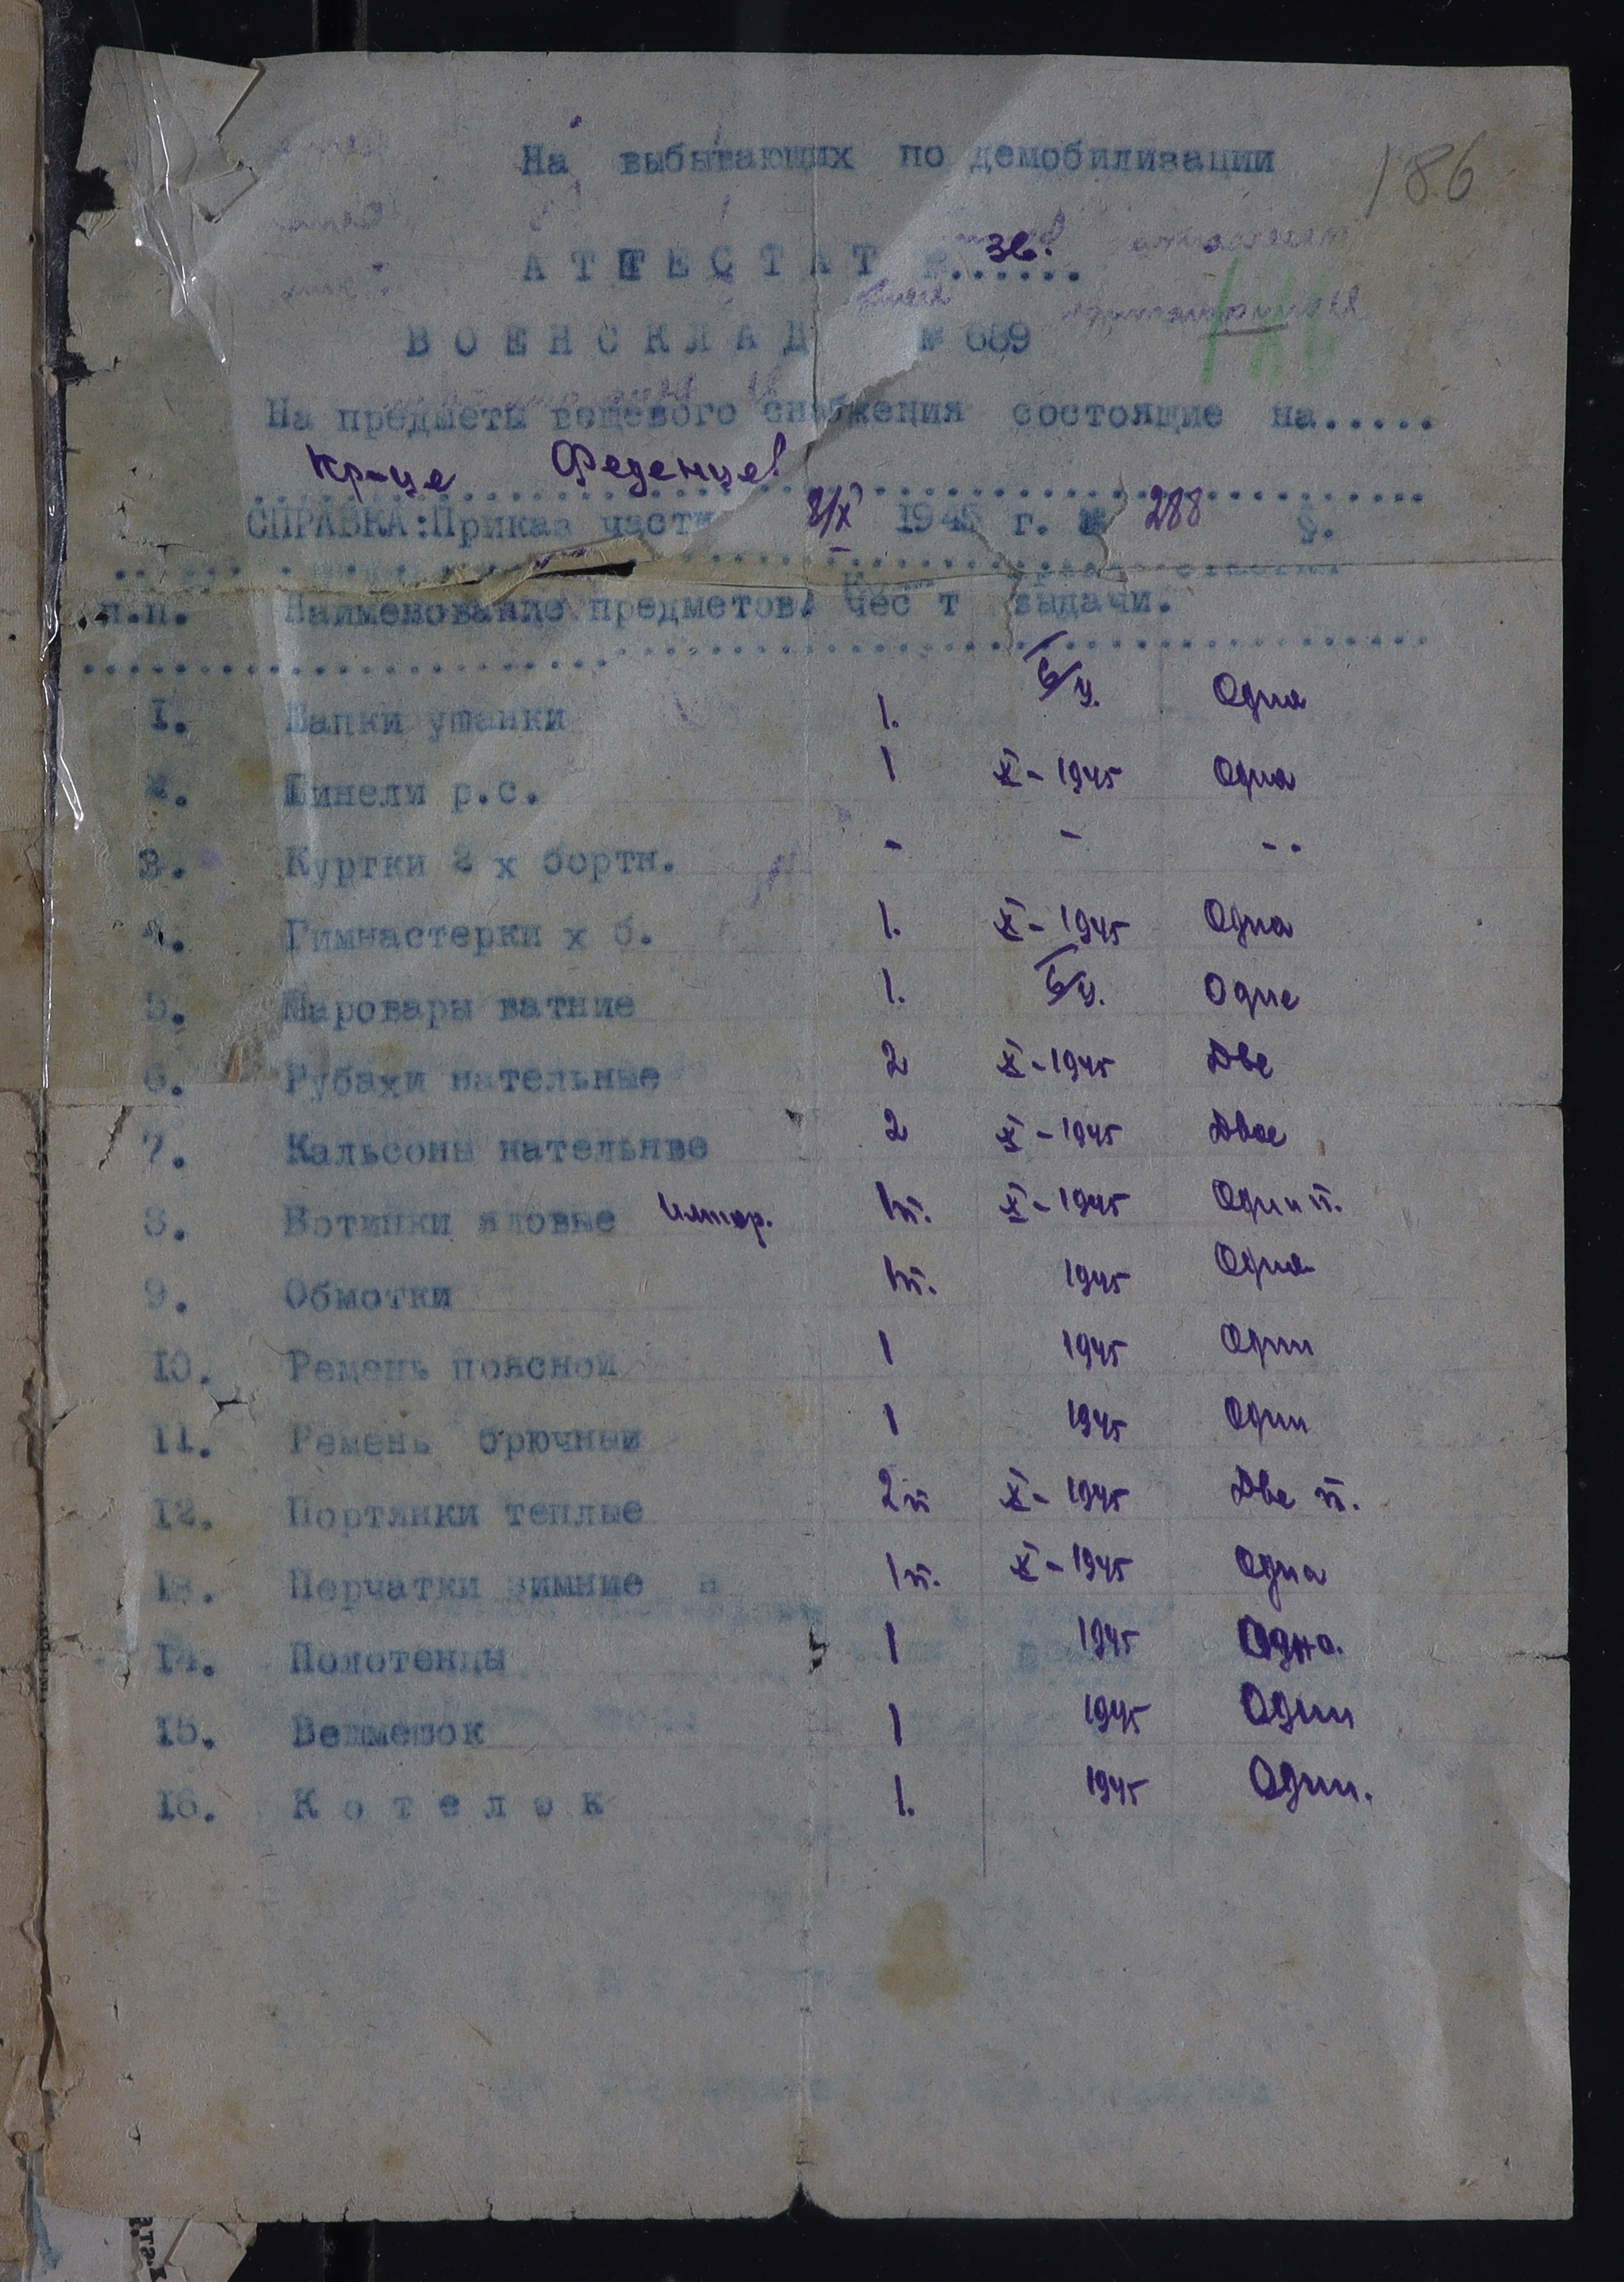 186
На выбывающих по демобилизации
АТТЕСТАТ №. 36. .....
ВОЕНСКЛАД № 689
На предметы вещевого снабжения состоящие на.....
Кр-це Феденцев
СПРАВКА:Приказ части 8/X 1945 г. № 288 §.
п.п. Наименование предметов. чес т выдачи.
1. Шапки ушанки 1. б/у. Одна
2. Шинели р.с. 1 X-1945 Одна
3. Куртки 2 х бортн. - - --
4. Гимнастерки х б. 1. X-1945 Одна
5. Шаровары ватние 1. б/у. Одне
6. Рубахи нательные 2 X-1945 Две
7. Кальсоны нательнве 2 X-1945 Двое
8. Ботинки яловые импор. 1п. X-1945 Один п.
9. Обмотки 1п. 1945 Одна
10. Ремень поясной 1 1945 Один
11. Ремень брючный 1 1945 Один
12. Портянки теплые 2п X-1945 Две п.
13. Перчатки зимние 1п. X-1945 Одна
14. Полотенцы 1 1945 Одно.
15. Вещмешок 1 1945 Один
16. Котелок 1. 1945 Один.